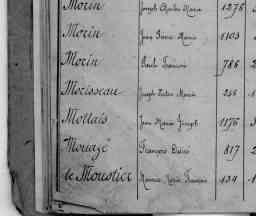 Morin Joseph Charles Marie 1276
Morin Jean Pierre Marie 1103
Morin Paul François 786 2
Morisseau Joseph Victor Marie
Mottais Jean Marie Joseph 1176
Mouazé François 817 2
le Moustier Marie François 434